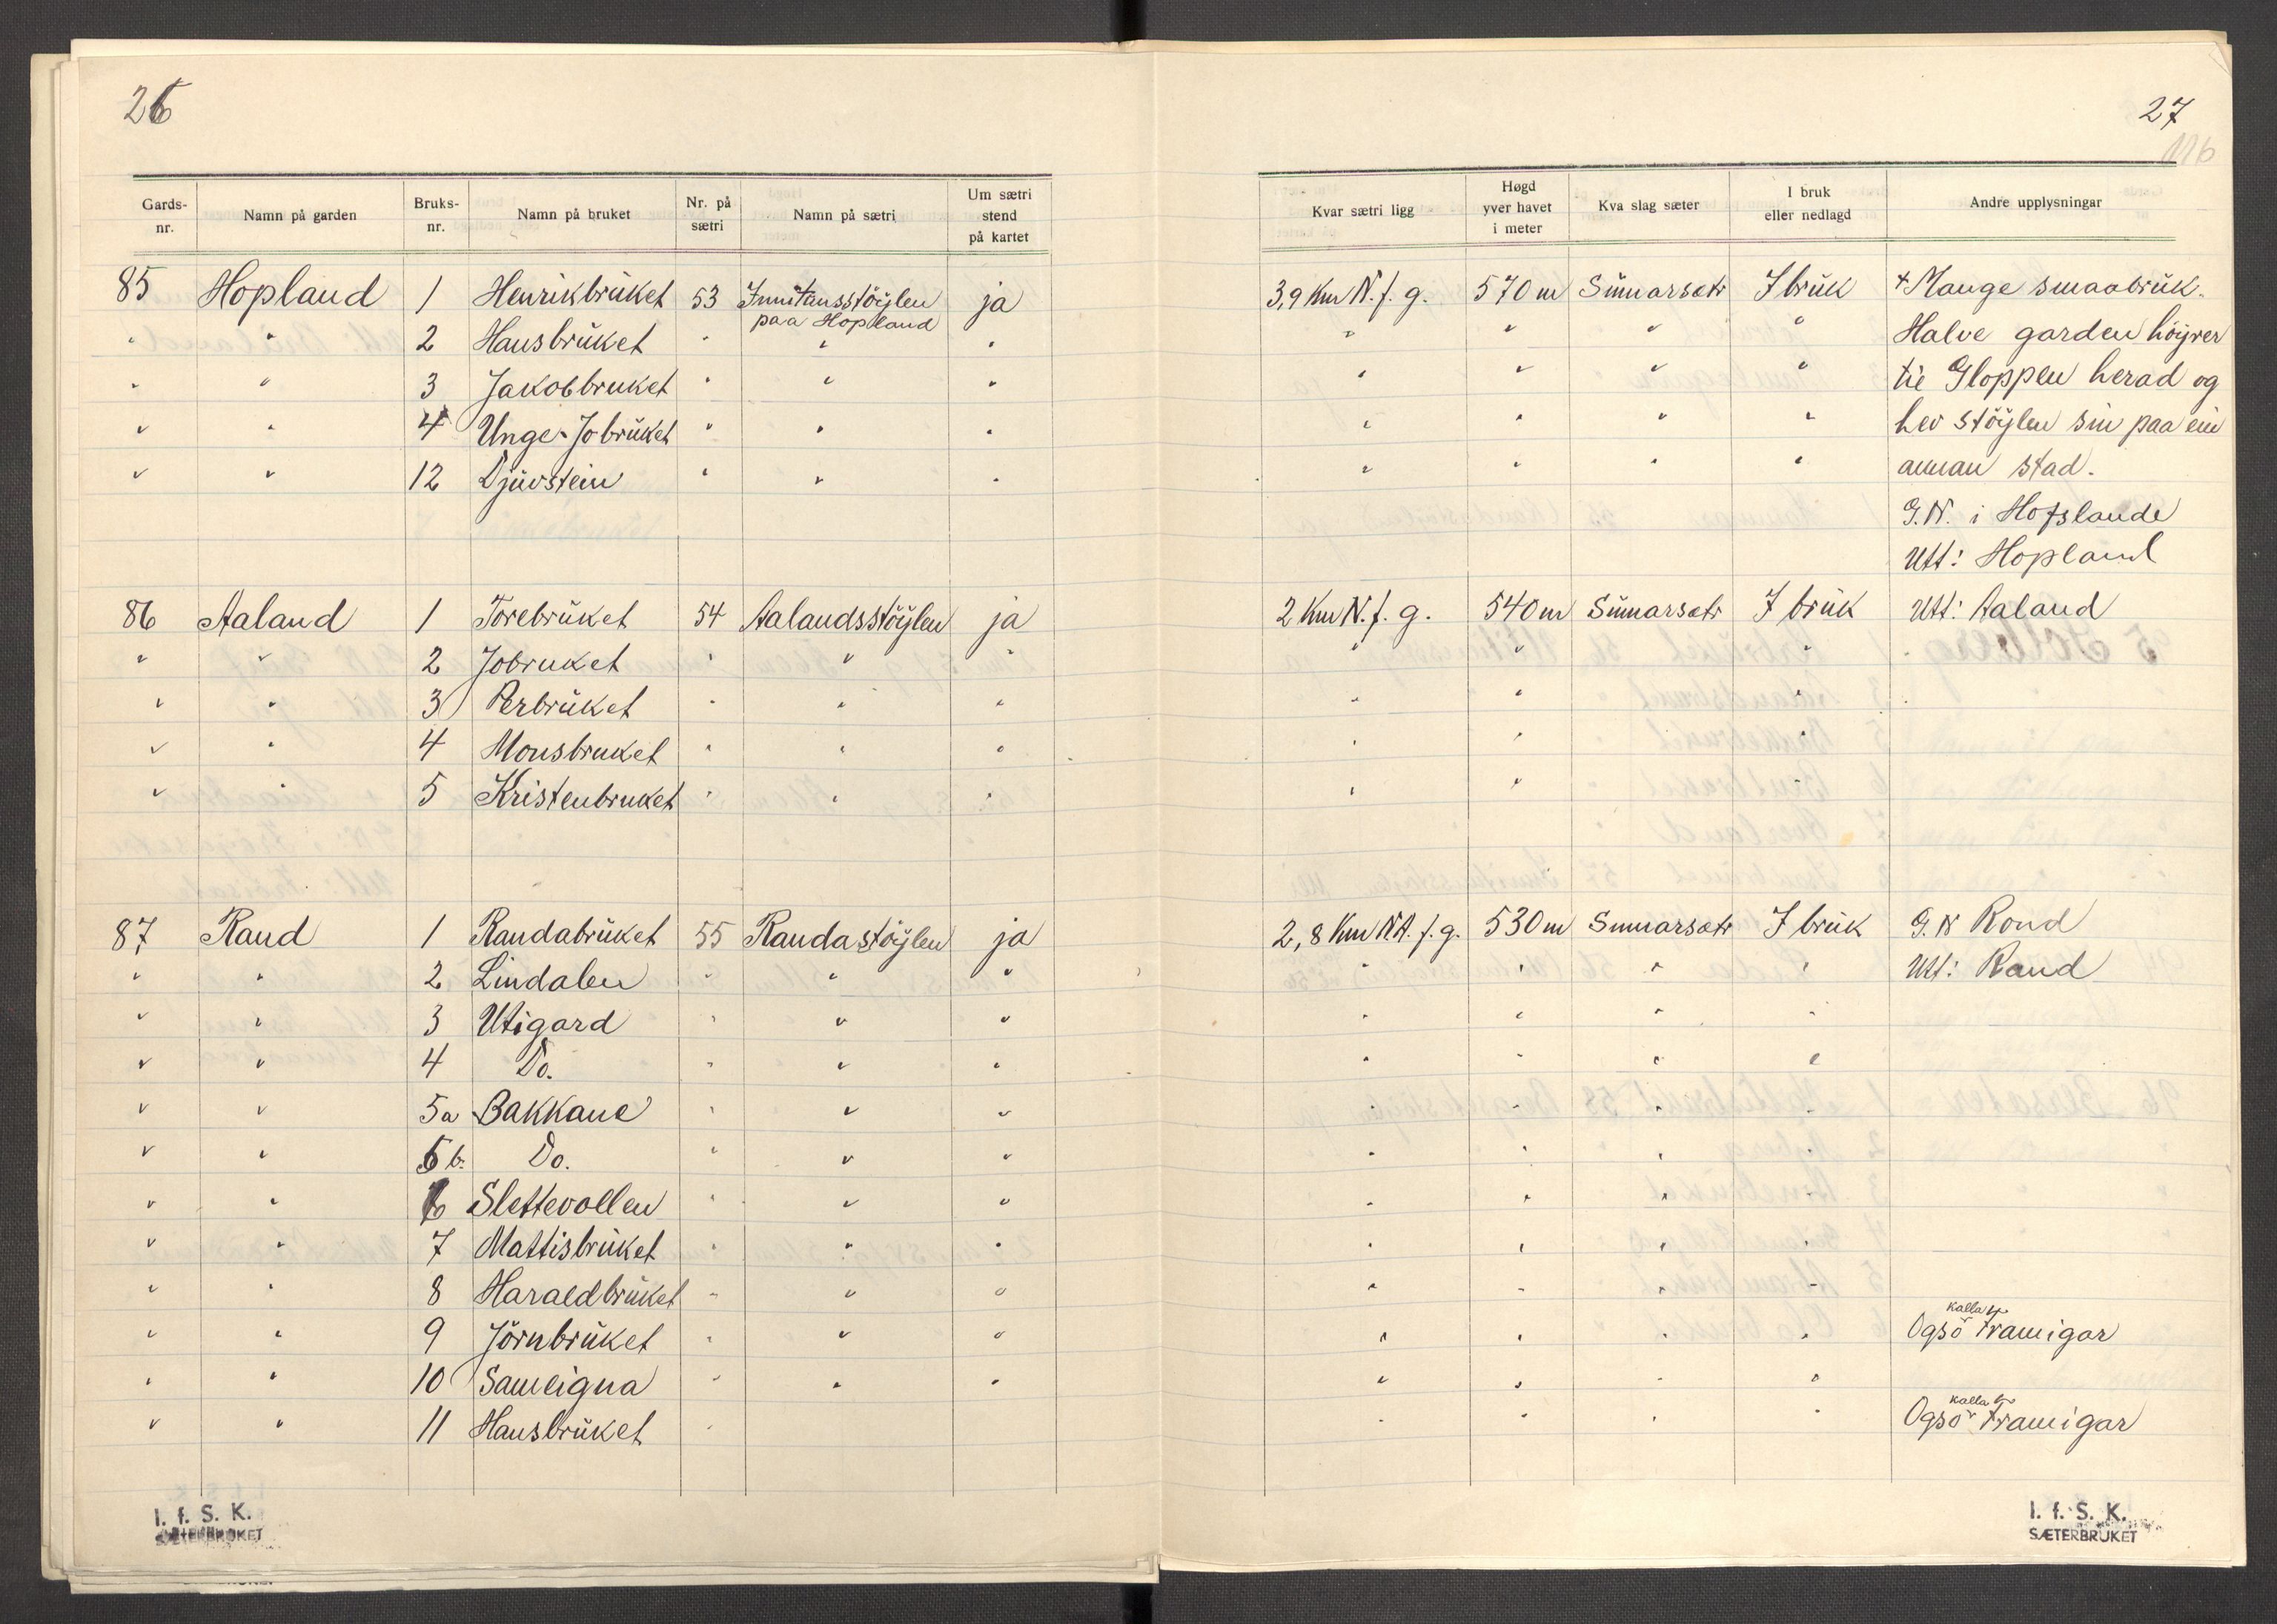 26
Gards-nr. Namn på garden Bruks-nr. Namn på bruket Nr. på sætri Namn på sætri Um sætri stend på kartet
85 Hopland 1 Henrikbruket 53 Innstansstöylen paa Hopland ja
" " 2 Hansbruket " " "
" " 3 Jakobbruket " " "
" " 4 Unge-Jobruket " " "
" " 12 Djuvstein " " "
86 Aaland 1 Torebruket 54 Aalandsstöylen ja
" " 2 Jobruket " " "
" " 3 Perbruket " " "
" " 4 Monsbruket " " "
" " 5 Kristenbruket " " "
87 Rand 1 Randabruket 55 Randastöylen ja
" " 2 Lindalen " " "
" " 3 Utigard " " "
" " 4 Do. " " "
" " 5a Bakkane " " "
" " 5b. Do. " " "
" " 6 Slettevollen " " "
" " 7 Mattisbruket " " "
" " 8 Haraldbruket " " "
" " 9 Jörnbruket " " "
" " 10 Sameigna " " "
" " 11 Hansbruket "
I. f. S. K.
SÆTERBRUKET
27
116
Kvar sætri ligg Høgd yver havet i meter Kva slag sæter I bruk eller nedlagd Andre upplysningar
3,9 Km N. f. g. 570 m Sumarsætr I bruk + Mange smaabruk.
" " " " Halve garden höyrer
" " " " til Gloppen herad og
" " " " hev stöylen sin paa ein
" " " " annan stad.
G.N. i Hofslande
Utt: Hopland
2 Km N. f. g. 540 m Sumarsætr I bruk Utt: Aaland
" " "
" " "
" " "
" " "
2,8 Km NA. f. g. 530 m Sumarsætr I bruk G. N Rond
" " " " Utt: Rand
" " " "
" " " "
" " " "
" " " "
" " " "
" " " "
" " " "
" " " " Ogso kalla Framigar
" " " "
" " " " Ogso kalla Framigar
I. f. S. K.
SÆTERBRUKET